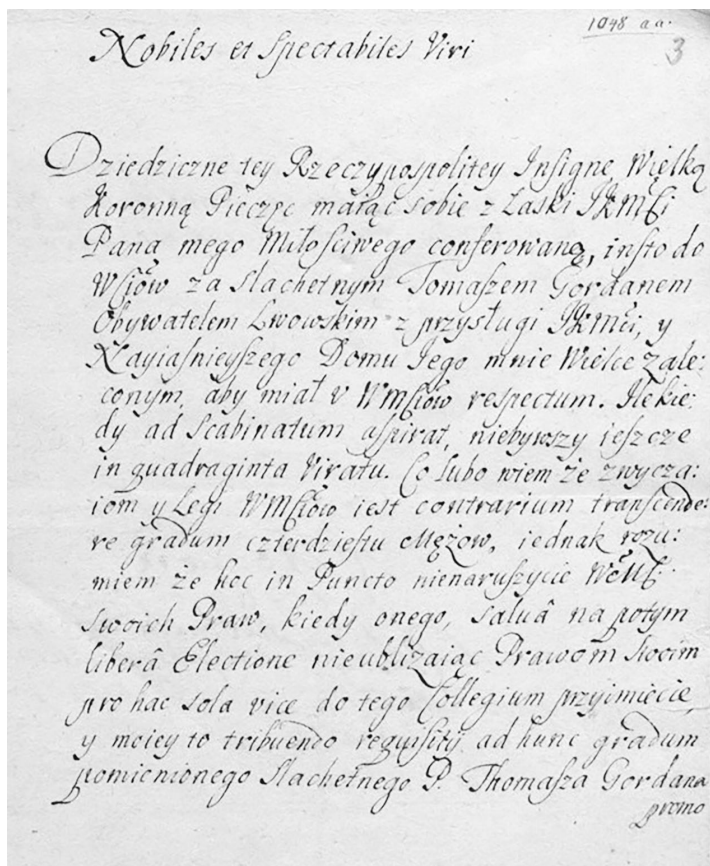 1048 a a.
3
Nobiles et Spectabiles Viri
Dziedziczne tey Rzeczypospolitey Insigne, Wielką
Koronną Pieczęc maiąc sobie z Łaski JKMści
Pana mego Miłosciwego conferowaną, insto do
WMściow za slachetnym Tomaszem Gordanem
Obywatelem Lwowskim z przysługi JKMści, y
Nayiasnieyszego Domu Jego mnie Wielce zale:
conym, aby miał v WMściow respectum. Ile kie:
dy ad Scabinatum aspirat, niebywszy ieszcze
in quadraginta Viratu. Co lubo wiem że zwycza:
iom y Legi WMściow iest contrarium transcende:
re gradum czterdziestu Mężow, iednak rozu:
miem że hoc in Puncto nienaruszycie WMści
swoich Praw, kiedy onego, salvâ na potym
liberâ Electione nieubliżaiąc Prawom swoim
pro hac sola vice do tego Collegium przyimiecie,
y moiey to tribuendo requisity ad hunc gradum
pomienionego slachetnego P. Thomasza Gordana
promo